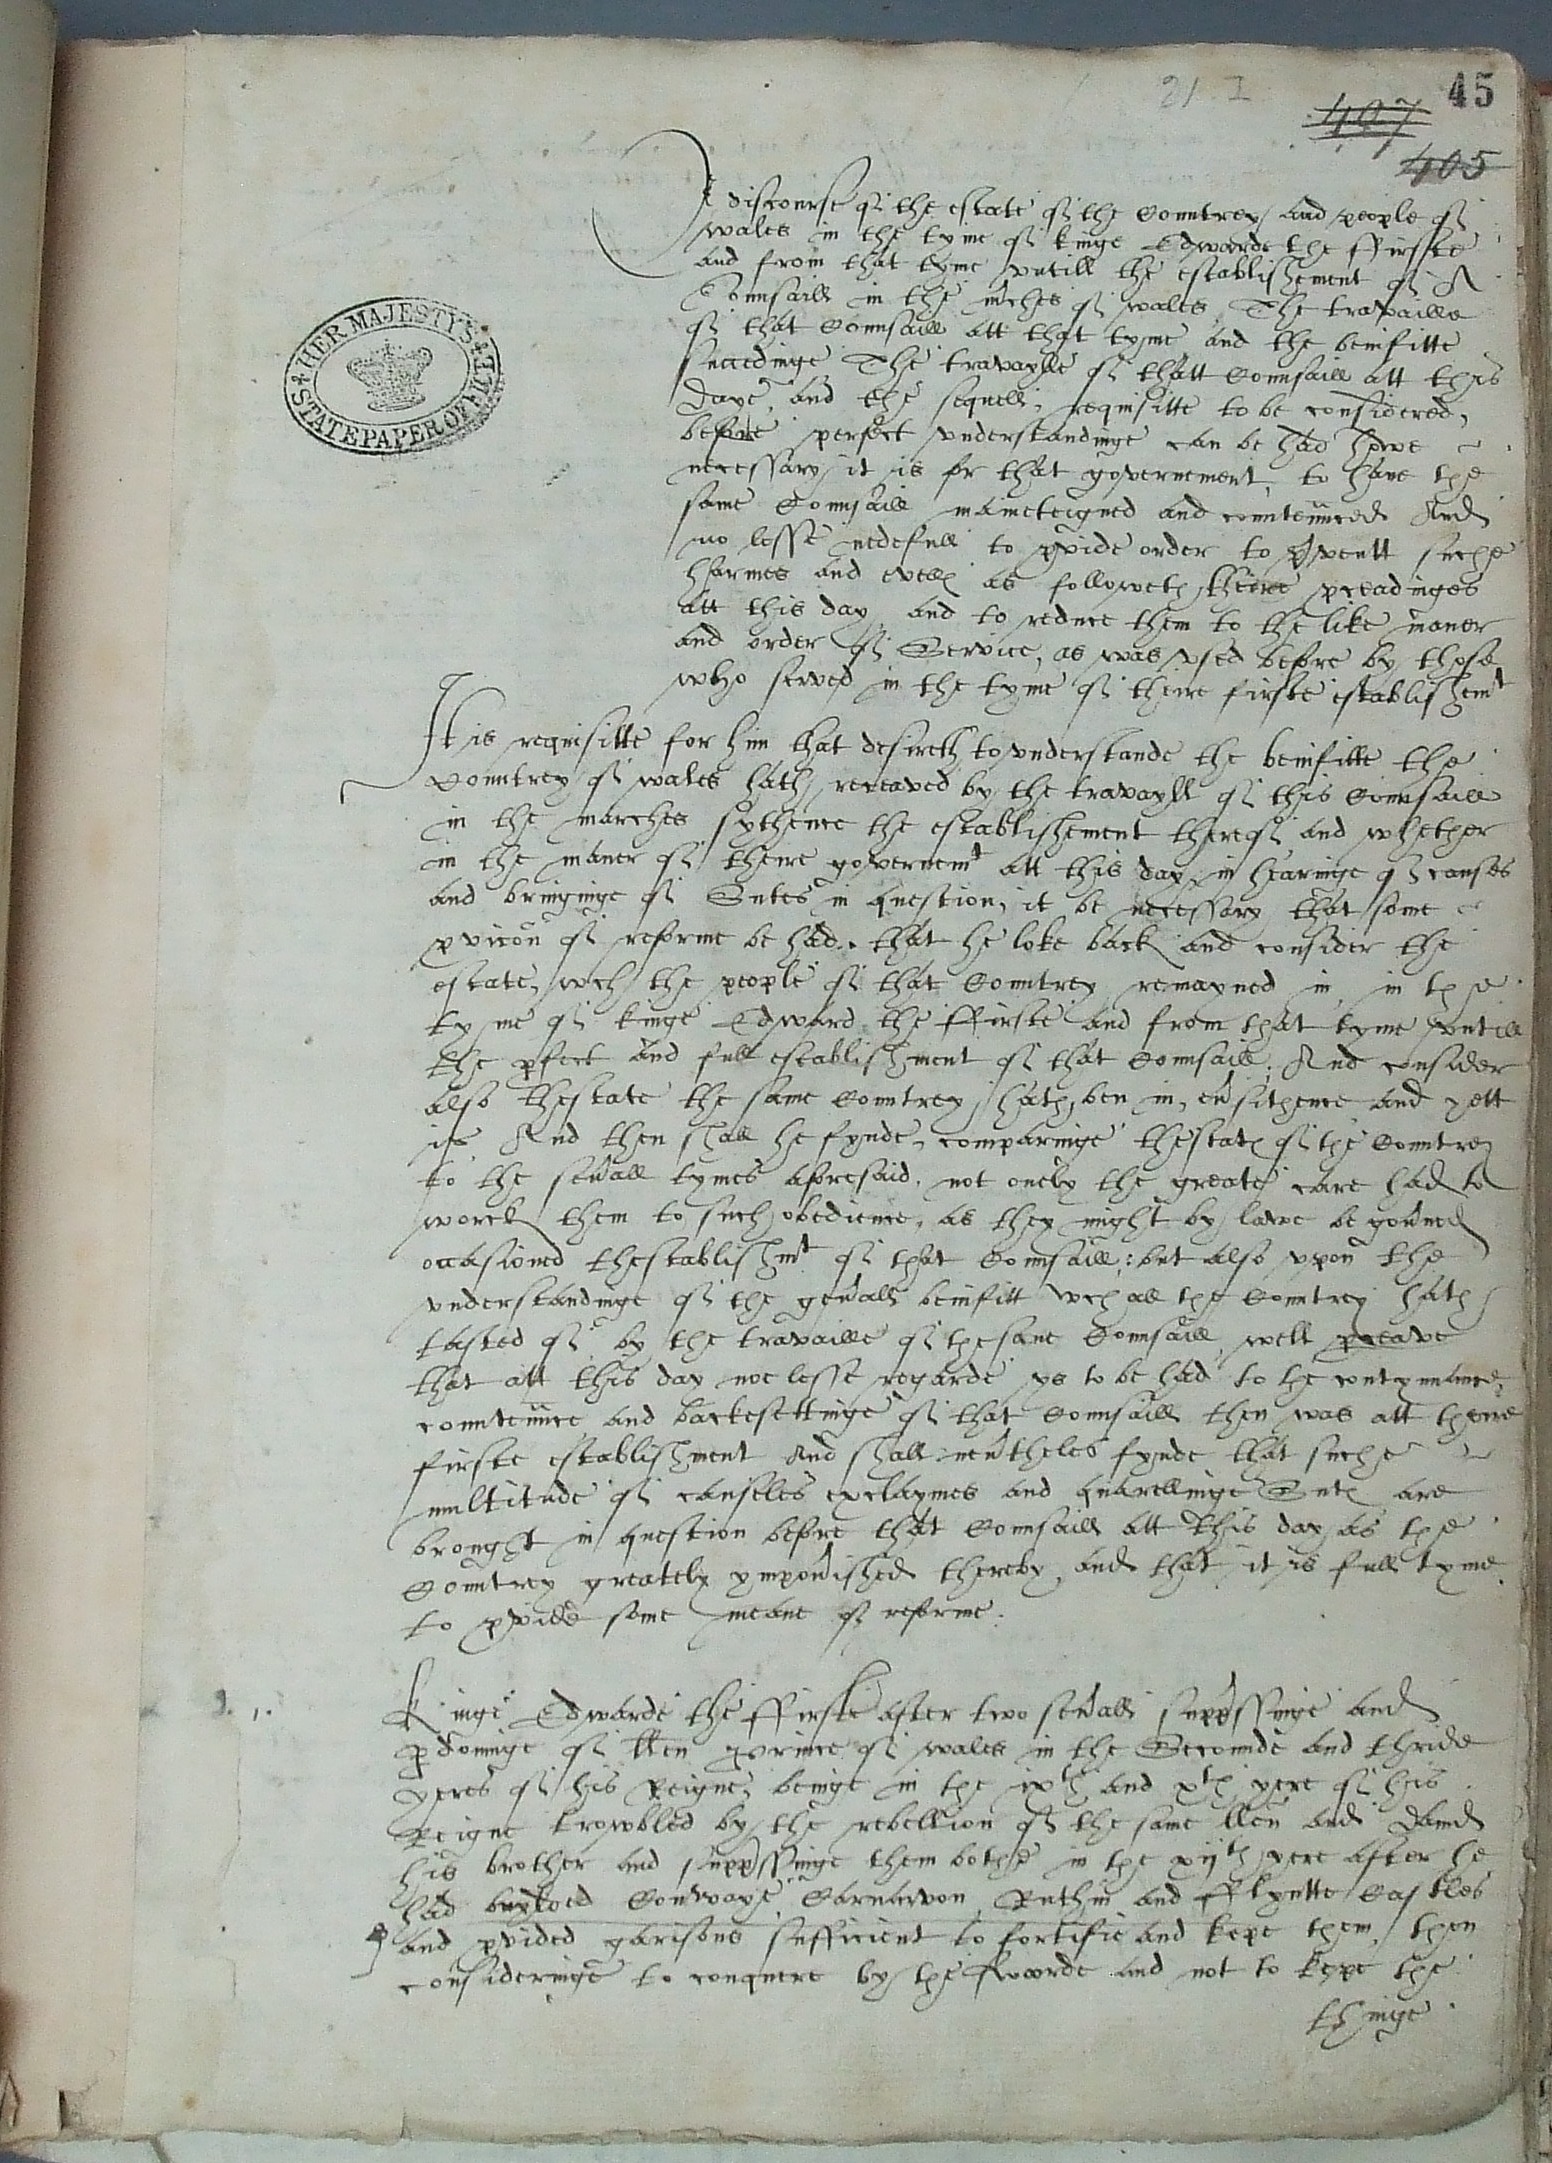 21. I
45
407
405
HER MAJESTY'S
STATE PAPER OFFICE
A discourse of the estate of the Countrey and people of
wales in the tyme of kinge Edwarde the ffirste
and from that tyme vntill the establishement of A
Counsaill in the mches of wales, The travaille
of that Counsaill att that tyme and the benifitte
succedinge The travaylle of thatt Counsaill att this
daye, and the sequell, requisitte to be considered,
before perfect vnderstandinge can be had howe
necessary it is for that governement, to have the
same Counsaill maineteigned and countenn̄ced And
no lesse nedefull to pvide order to pvent suche
harmes and evells as followeth theire pceadinges
att this day, and to reduce them to the like maner
and order of Service, as was vsed before by those
who served in the tyme of theire firste establishemt
It is requisitte for him that desireth to vnderstande the benifitte the
Countrey of wales hath receaved by the travayll of this Counsaill
in the marches sythence the establishement thereof and whether
in the maner of theire governemt att this day, in hearinge of causes
and bringinge of Sutes in question, it be necessary that some
pvicōn of reforme be had. that he loke back and consider the
estate, wch the people of that Countrey remayned in, in the
tyme of kinge Edward the ffirste and from that tyme vntill
the pfect and full establishment of that Counsaill. And consider
also thestate the same Countrey hath ben in, eūsithence and yett
is And then shall he fynde, comparinge thestate of the Countrey
to the seūall tymes aforesaid, not onely the greate care had to
worck them to such obedience, as they might by lawe be goūned
occasioned thestablishmt of that Counsaill: but also vpon the
vnderstandinge of the geūall benifitt wch all the Countrey hath
tasted of by the travaille of the same Counsaill, well preave
that att this day noe lesse regarde ys to be had to the contynuance
countenn̄ce and backesettinge of that Counsaill then was att there
firste establishment And shall neūtheles fynde that suche
multitude of causeles exclaymes and quarellinge Sutes are
brought in question before that Counsaill att this day as the
Countrey greately ympoūished thereby, and that it is full tyme
to pvide some meane of reforme.
1.
Kinge Edwarde the ffirste after two seūall suppssinge and
pdoninge of lleñ prince of wales in the Seconnde and thride
yeres of his Reigne, beinge in the ixth and xth yere of his
Reigne trowbled by the rebellion of the same lleñ and David
his brother and suppssinge them bothe in the xijth yere after he
had buyloed Conwaye, Carnarvon, Ruthin and fflyntte Castles
and pvided garisons sufficient to fortifie and kepe them, then
consideringe to conquere by the swoorde and not to kepe the
thinge